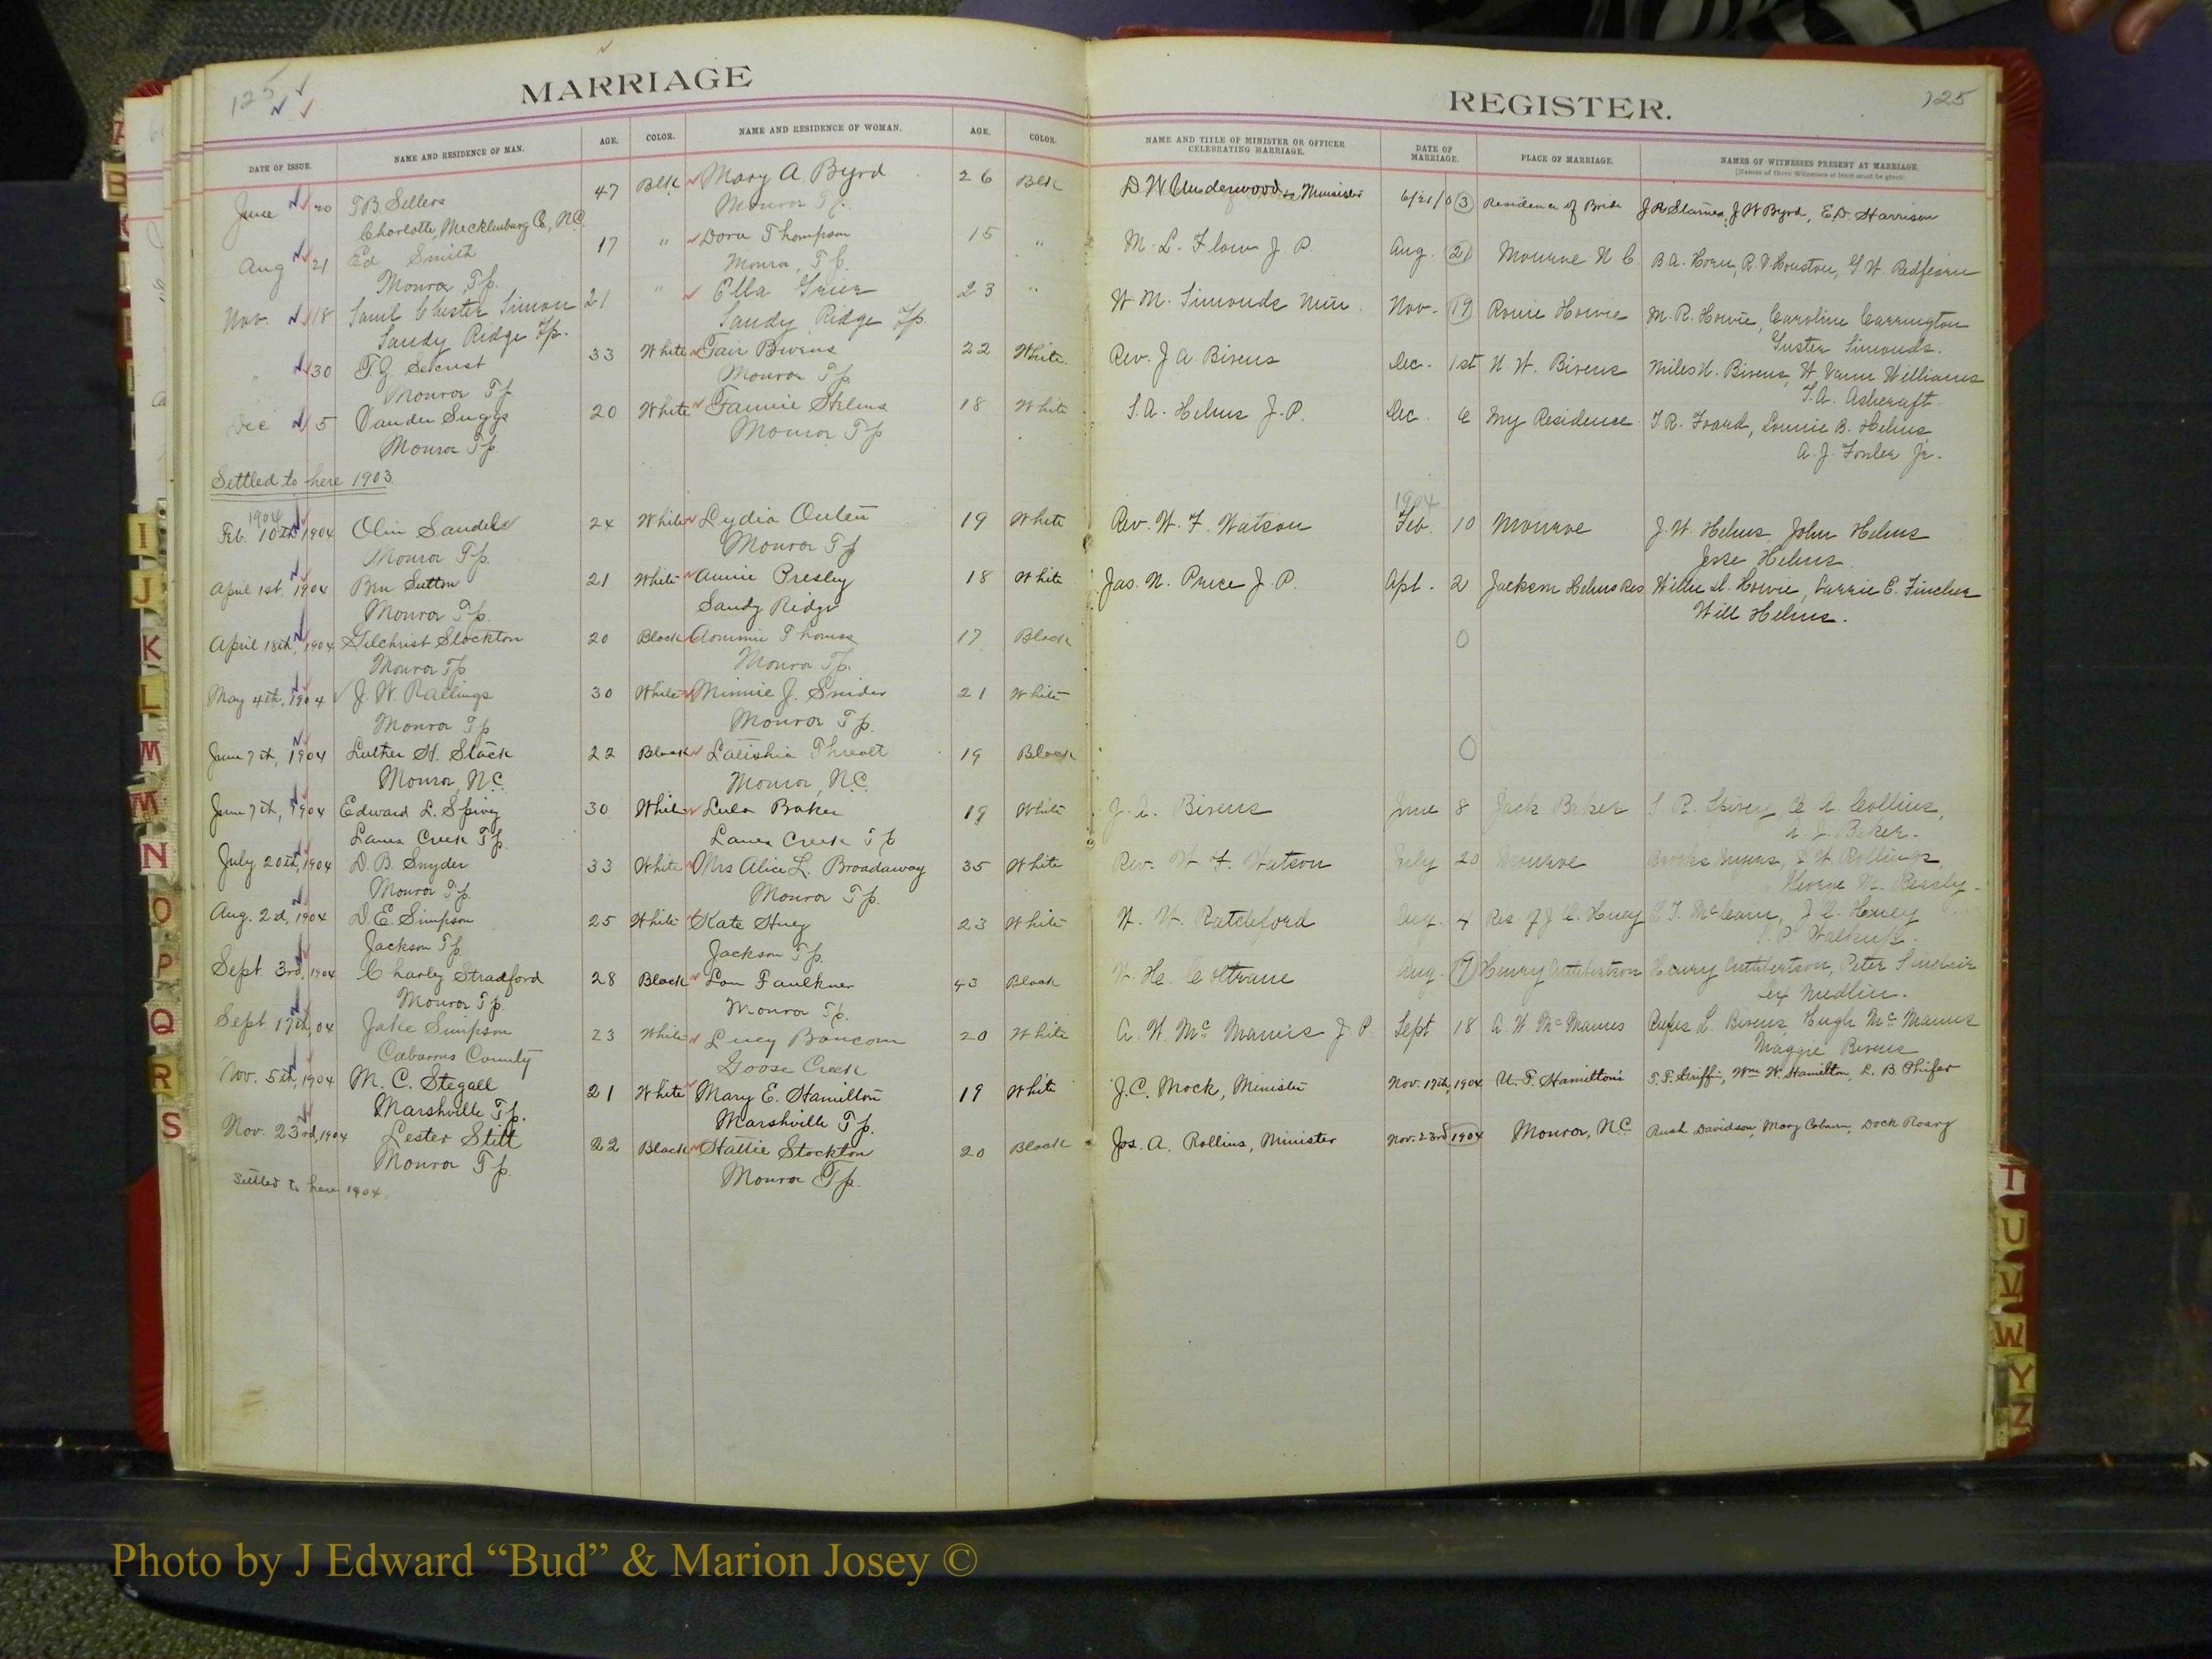 MARRIAGE
REGISTER.
125
125
DATE OF ISSUE.
NAME AND RESIDENCE OF MAN.
AGE.
COLOR.
NAME AND RESIDENCE OF WOMAN.
AGE.
COLOR.
NAME AND TITLE OF MINISTER OR OFFICER
CELEBRATING MARRIAGE.
DATE OF
MARRIAGE.
PLACE OF MARRIAGE.
NAMES OF WITNESSES PRESENT AT MARRIAGE.
[Names of three Witnesses at least must be given]
June 20 T.B. Sellers 47 Blk Mary A. Byrd 26 Blk D W Underwood Minister 6/21/03 Residence of Bride J R Starnes, J W Byrd, E.D. Harrison
Charlotte, Mecklenburg Co, N.C. Monroe Tp.
Aug 21 Ed Smith 17 " Dora Thompson 15 " M. L. Flow J P Aug. 21 Monroe N C B.A. Horn, R. V Houston, G W. Redfearn
Monroe Tp. Monroe, Tp.
Nov. 18 Saml Chester Simon 21 " Ella Grier 23 " W. M. Simonds Min. Nov. 19 Howie M. R. Howie, Caroline Carrington
Sandy Ridge Tp. Sandy Ridge Tp. Simonds.
" 30 T. J. Secrest 33 White Bivens 22 White Rev. J A Bivens Dec. 1st N W. Bivens Miles H. Bivens, W Vann Williams
Monroe Tp Monroe Tp. T.A. Ashcraft
Dec 5 Vander Suggs 20 White Fannie Helms 18 White S. A. Helms J. P. Dec 6 My Residence T R. Foard, Lonnie B. Helms
Monroe Tp. Monroe Tp A. J. Fowler Jr.
Settled to here 1903.
1904 1904
Feb. 10th 1904 Olin Sandels 24 White Lydia Outen 19 White Rev. W. F. Watson Feb. 10 Monroe J. W. Helms John Helms
Monroe Tp. Monroe Tp Jesse Helms
April 1st, 1904 Ben Sutton 21 White Annie Presley 18 White Jas. N. Price J. P. Apl. 2 Jackson Helms Res Willie H. Howie, Carrie E. Fincher
Monroe Tp. Sandy Ridge Will Helms.
April 18th, 1904 Gilchrist Stockton 20 Black Thomas 17 Black 0
Monroe Tp Monroe Tp.
May 4th, 1904 J. W. Rallings 30 White Minnie J. Snider 21 White
Monroe Tp Monroe Tp.
June 7th, 1904 Luther H. Stack 22 Black Latishia Threatt 19 Black 0
Monroe, N.C. Monroe, N.C.
June 7th, 1904 Edward L. Spivey 30 White Lula Baker 19 White J. A. Bivens June 8 Jack Baker S. R. Spivey, Collins,
Lanes Creek Tp. Lanes Creek Tp Baker.
July 20th, 1904 D. B. Snyder 33 White Mrs Alice L. Broadaway 35 White Rev. W F. Watson July 20 Monroe Brooks Myers, Rollings,
Monroe Tp. Monroe Tp. George M.
Aug. 2d, 1904 D. E. Simpson 25 White Kate Huey 23 White W. W. Ratchford Aug. 4 Res. of J. E. Huey McCain, J. E. Huey
Jackson Tp. Jackson Tp. Walkup.
Sept. 3rd, 1904 Charley Stradford 28 Black Lou Faulkner 43 Black Coltrane Aug. 17 Henry Cuthbertson Henry Cuthbertson, Peter Sinclair
Monroe Tp. Monroe Tp. Medlin.
Sept 17th, 04 Jake Simpson 23 White Lucy Baucom 20 White A. W. McManus J. P. Sept 18 A. W. McManus Rufus L. Bivens, Hugh McManus
Cabarrus County Goose Creek Maggie Bivens
Nov. 5th, 1904 M. C. Stegall 21 White Mary E. Hamilton 19 White J. C. Mock, Minister Nov. 17th, 1904 U. F. Hamilton's T. F. Griffin, Wm W. Hamilton, L. B Phifer
Marshville Tp. Marshville Tp.
Nov. 23rd, 1904 Lester Stitt 22 Black Hattie Stockton 20 Black Jos. A. Rollins, Minister Nov. 23rd 1904 Monroe, N.C. Rush Davidson, Mary Coburn, Dock
Monroe Tp. Monroe Tp.
Settled to here 1904.
B
I
J
K
L
M
M
N
O
P
Q
R
S
T
U
V
W
Y
Z
Photo by J Edward “Bud” & Marion Josey ©